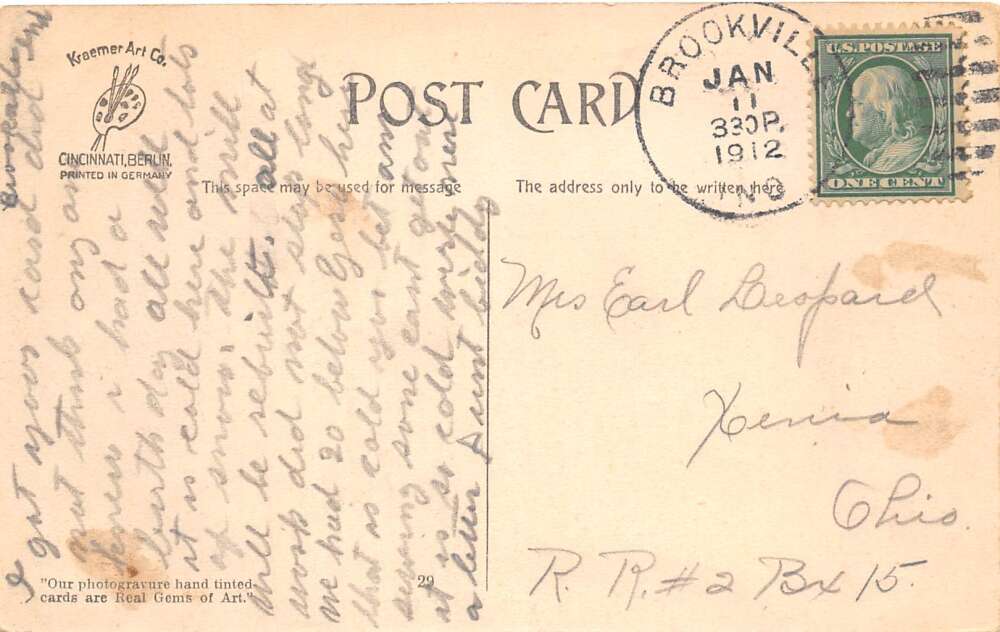 Kraemer Art Co.
CINCINNATI, BERLIN.
PRINTED IN GERMANY
POST CARD
This space may be used for message
The address only to be written here
BROOKVILLE
JAN
11
330P.
1912
IND
U.S. POSTAGE
ONE CENT
I got your card did
not think any one
knew i had a
birth day all well
it is cold here and lots
of snow. the mill
will be rebuilt. all at
work did not stop long
we had 20 below Zero here
that is cold you bet am
sewing some cant get out
it is so cold write more
a letter Aunt biddy
Mrs Earl Leopard
Xenia
Ohio.
R. R. #2 Bx 15.
"Our photogravure hand tinted
cards are Real Gems of Art."
29